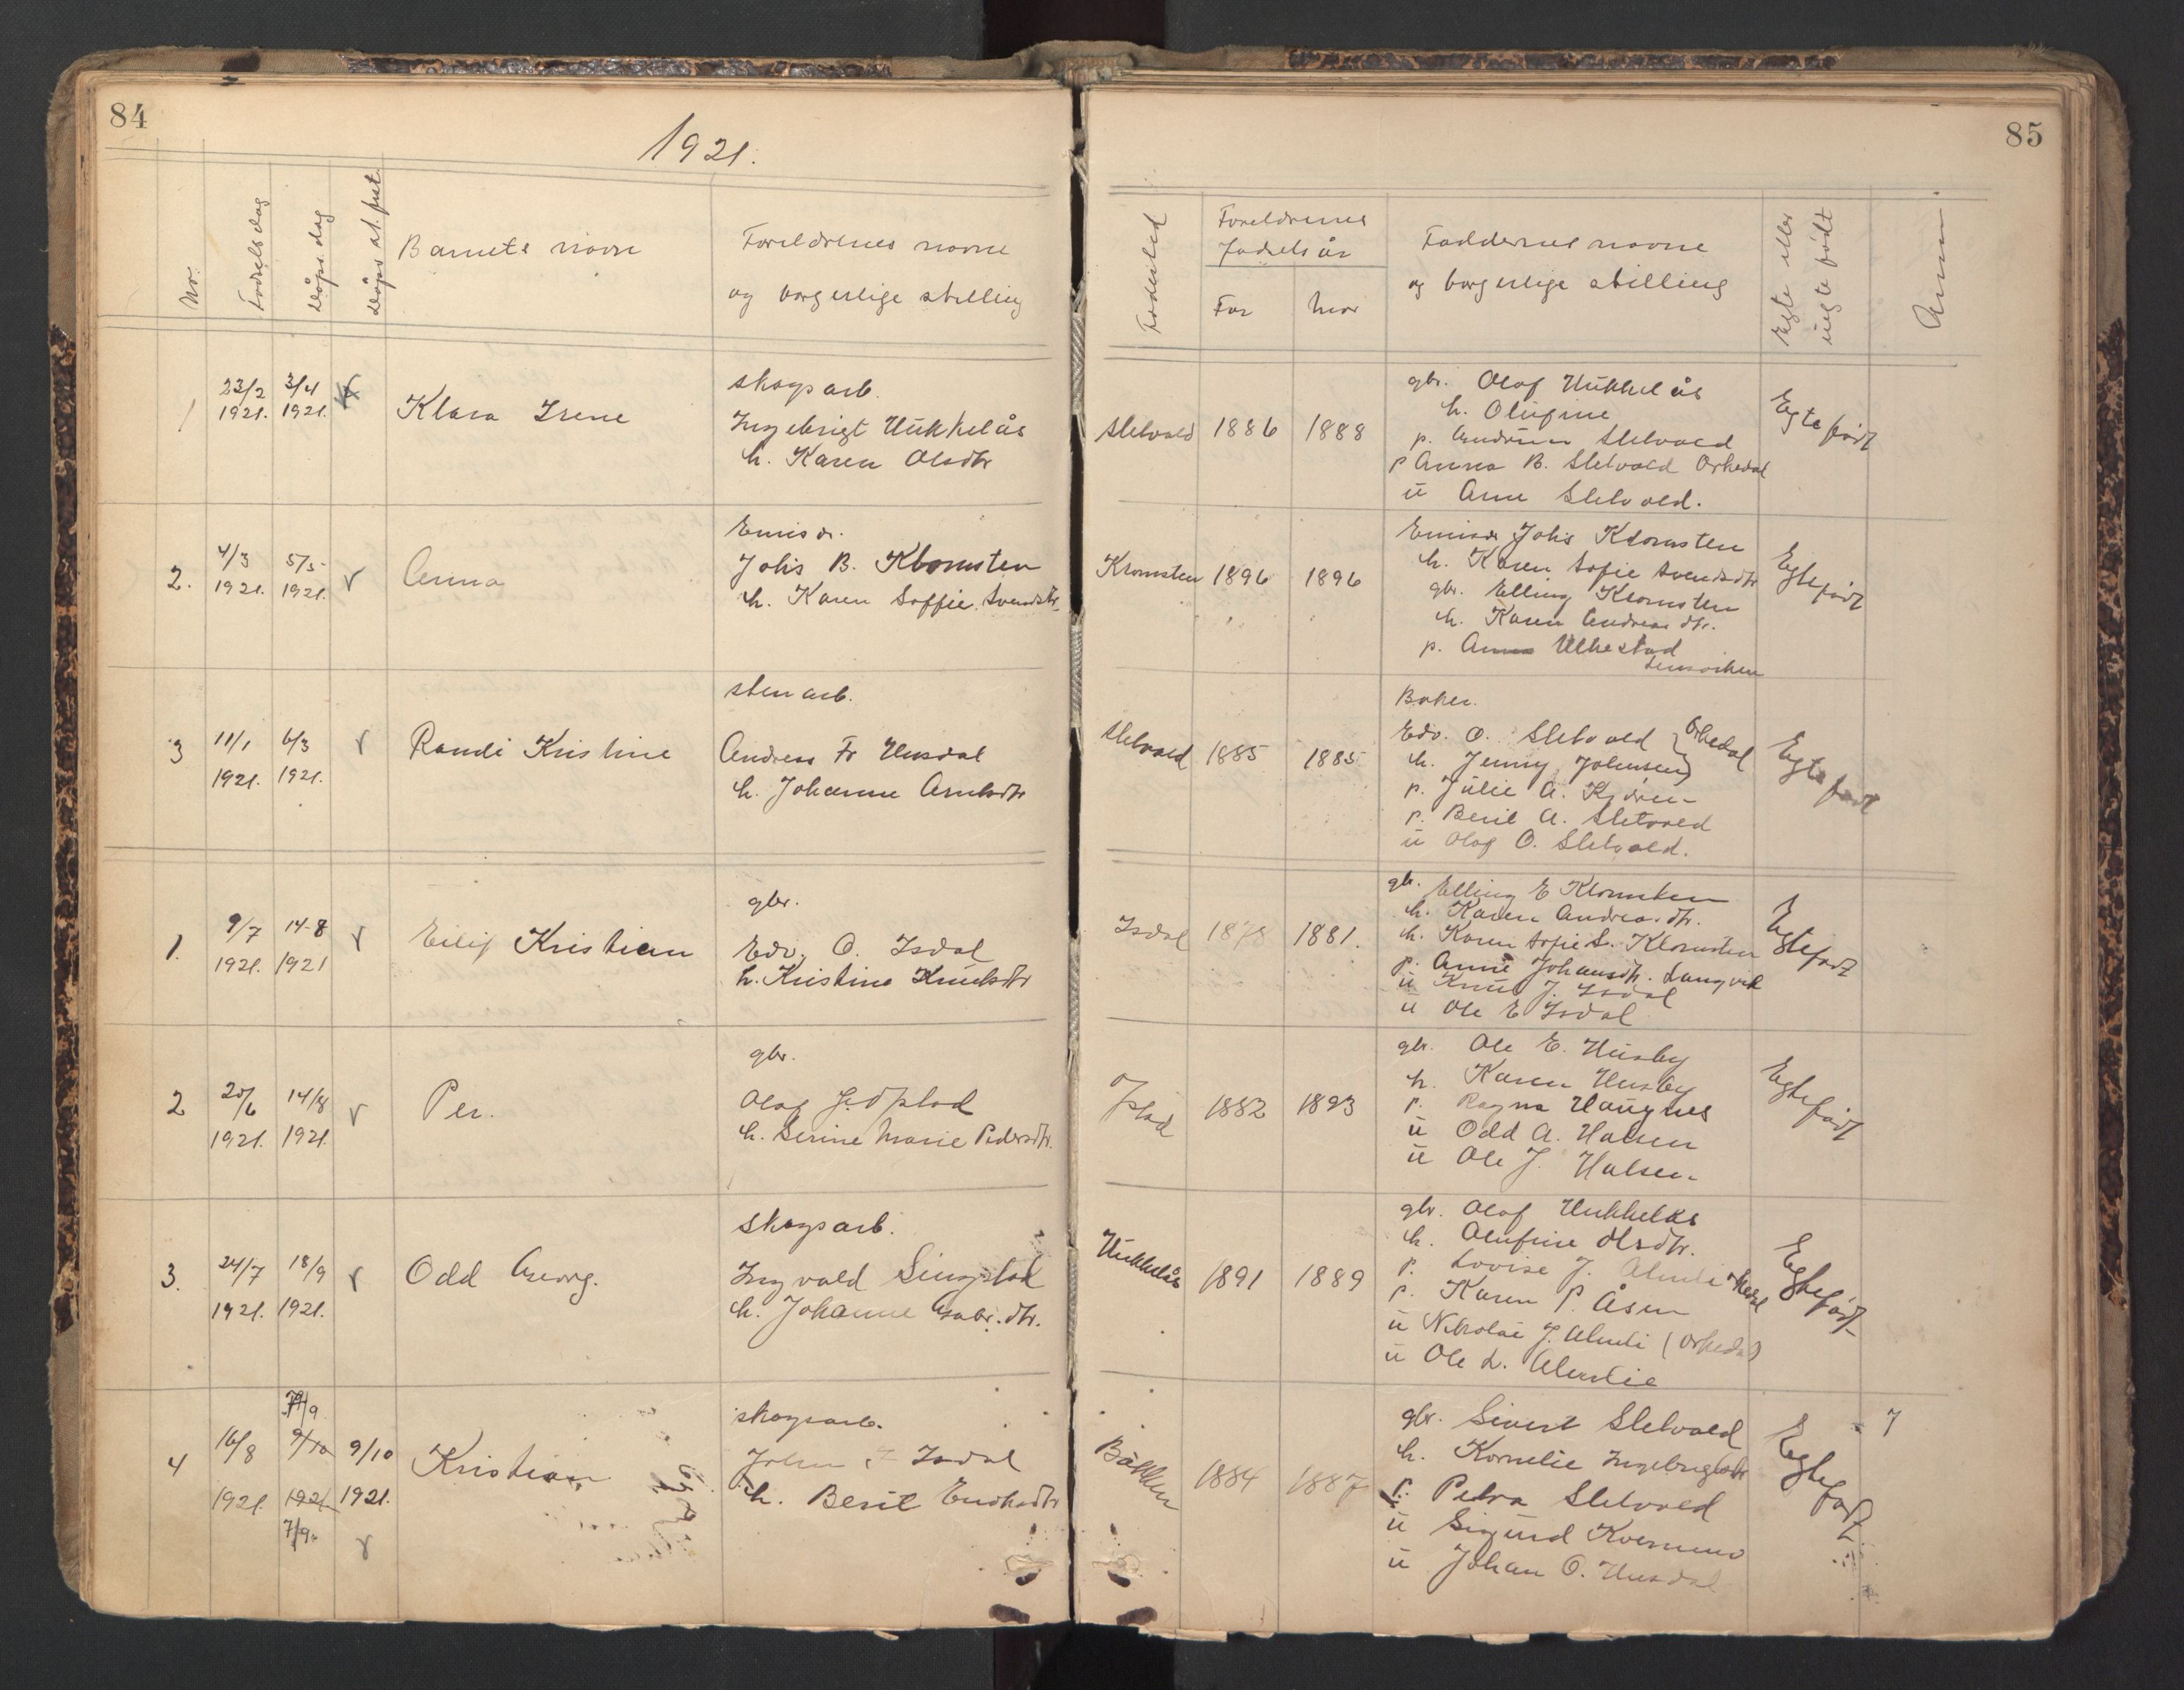 84
1921.
No.
Fødselsdag
Døps dag
Barnets navn
Foreldrenes navne
og borgerlige stilling
1
23/2
1921.
3/4
1921.
Klara Irene
skogsarb.
Ingebrigt Hukkelås
h. Karen Olsdtr
2.
4/3
1921.
5/5
1921.
Anna
Emisær.
Johs B. Klomsten
h. Karen Soffie Svendsdtr.
3
11/1
1921.
6/3
1921.
Randi Kristine
stenarb.
Andreas Fr Husdal
h. Johanne Arntsdtr
1.
9/7
1921.
14-8
1921
Eilif Kristian
gbr.
Edv. O. Isdal
h. Kristine Knutsdtr
2
20/6
1921.
14/8
1921.
Per.
gbr.
Olaf
h. Serine Marie Pedersdtr.
3.
24/7
1921.
18/9
1921.
Odd Georg.
skogsarb.
Ingvald Singstad
h. Johanne Gabr.dtr.
4
16/8
1921.
9/10
1921.
7/9.
9/10
1921.
Kristian
skogsarb.
John Isdal
h. Berit
85
Fødested
Foreldrenes
fødselsår
Far
Mor
Faddernes navne
og borgerlige stilling
Egte eller
uegte født
Anm
Sletvold
1886
1888
gbr. Olaf Hukkelås
h. Olufine
p. Sletvold
p Anna B. Sletvold Orkedal
u Arne Sletvold.
Egte født
Klomsten
1896
1896
Emisær Johs Klomsten
h. Karen Sofie Svendsdtr
gbr. Elling Klomsten
h. Karen Andreas dtr.
p. Anna Ulkestad
Egte født
Sletvold
1885
1885
Baker.
Edv. O. Sletvold } Orkedal
h. Jenny Johnsen
p. Julie A. Kjøren
p. Berit A. Sletvold
u Olaf O. Sletvold.
Egte født
Isdal
1878
1881.
gb. Elling E Klomsten
h. Karen Andrea.dtr.
h. Karen Sofie S. Klomsten
p. Anne Johansdtr. Langvik
u Knut J. Isdal
u Ole E Isdal
Egte født
1882
1893
gbr. Ole E. Husby
h. Karen Husby
p. Ragna Haugnes
u Odd A. Halsen
u Ole J. Halsen
Egte født
Hukkelås
1891
1889
gbr. Olaf Hukkelås
h. Olufine Olsdtr.
p. Lovise J. Almli
p. Karen P. Åsen
u Nikolai J. Almli (Orkedal)
u Ole L. Almlie
Egte født
Bakken
1884
1887
gbr. Sivert Sletvold
h. Kornelie Ingebrigtsdtr
p. Petra Sletvold
u Sigurd Kvernmo
u Johan O. Husdal
Egte født
7